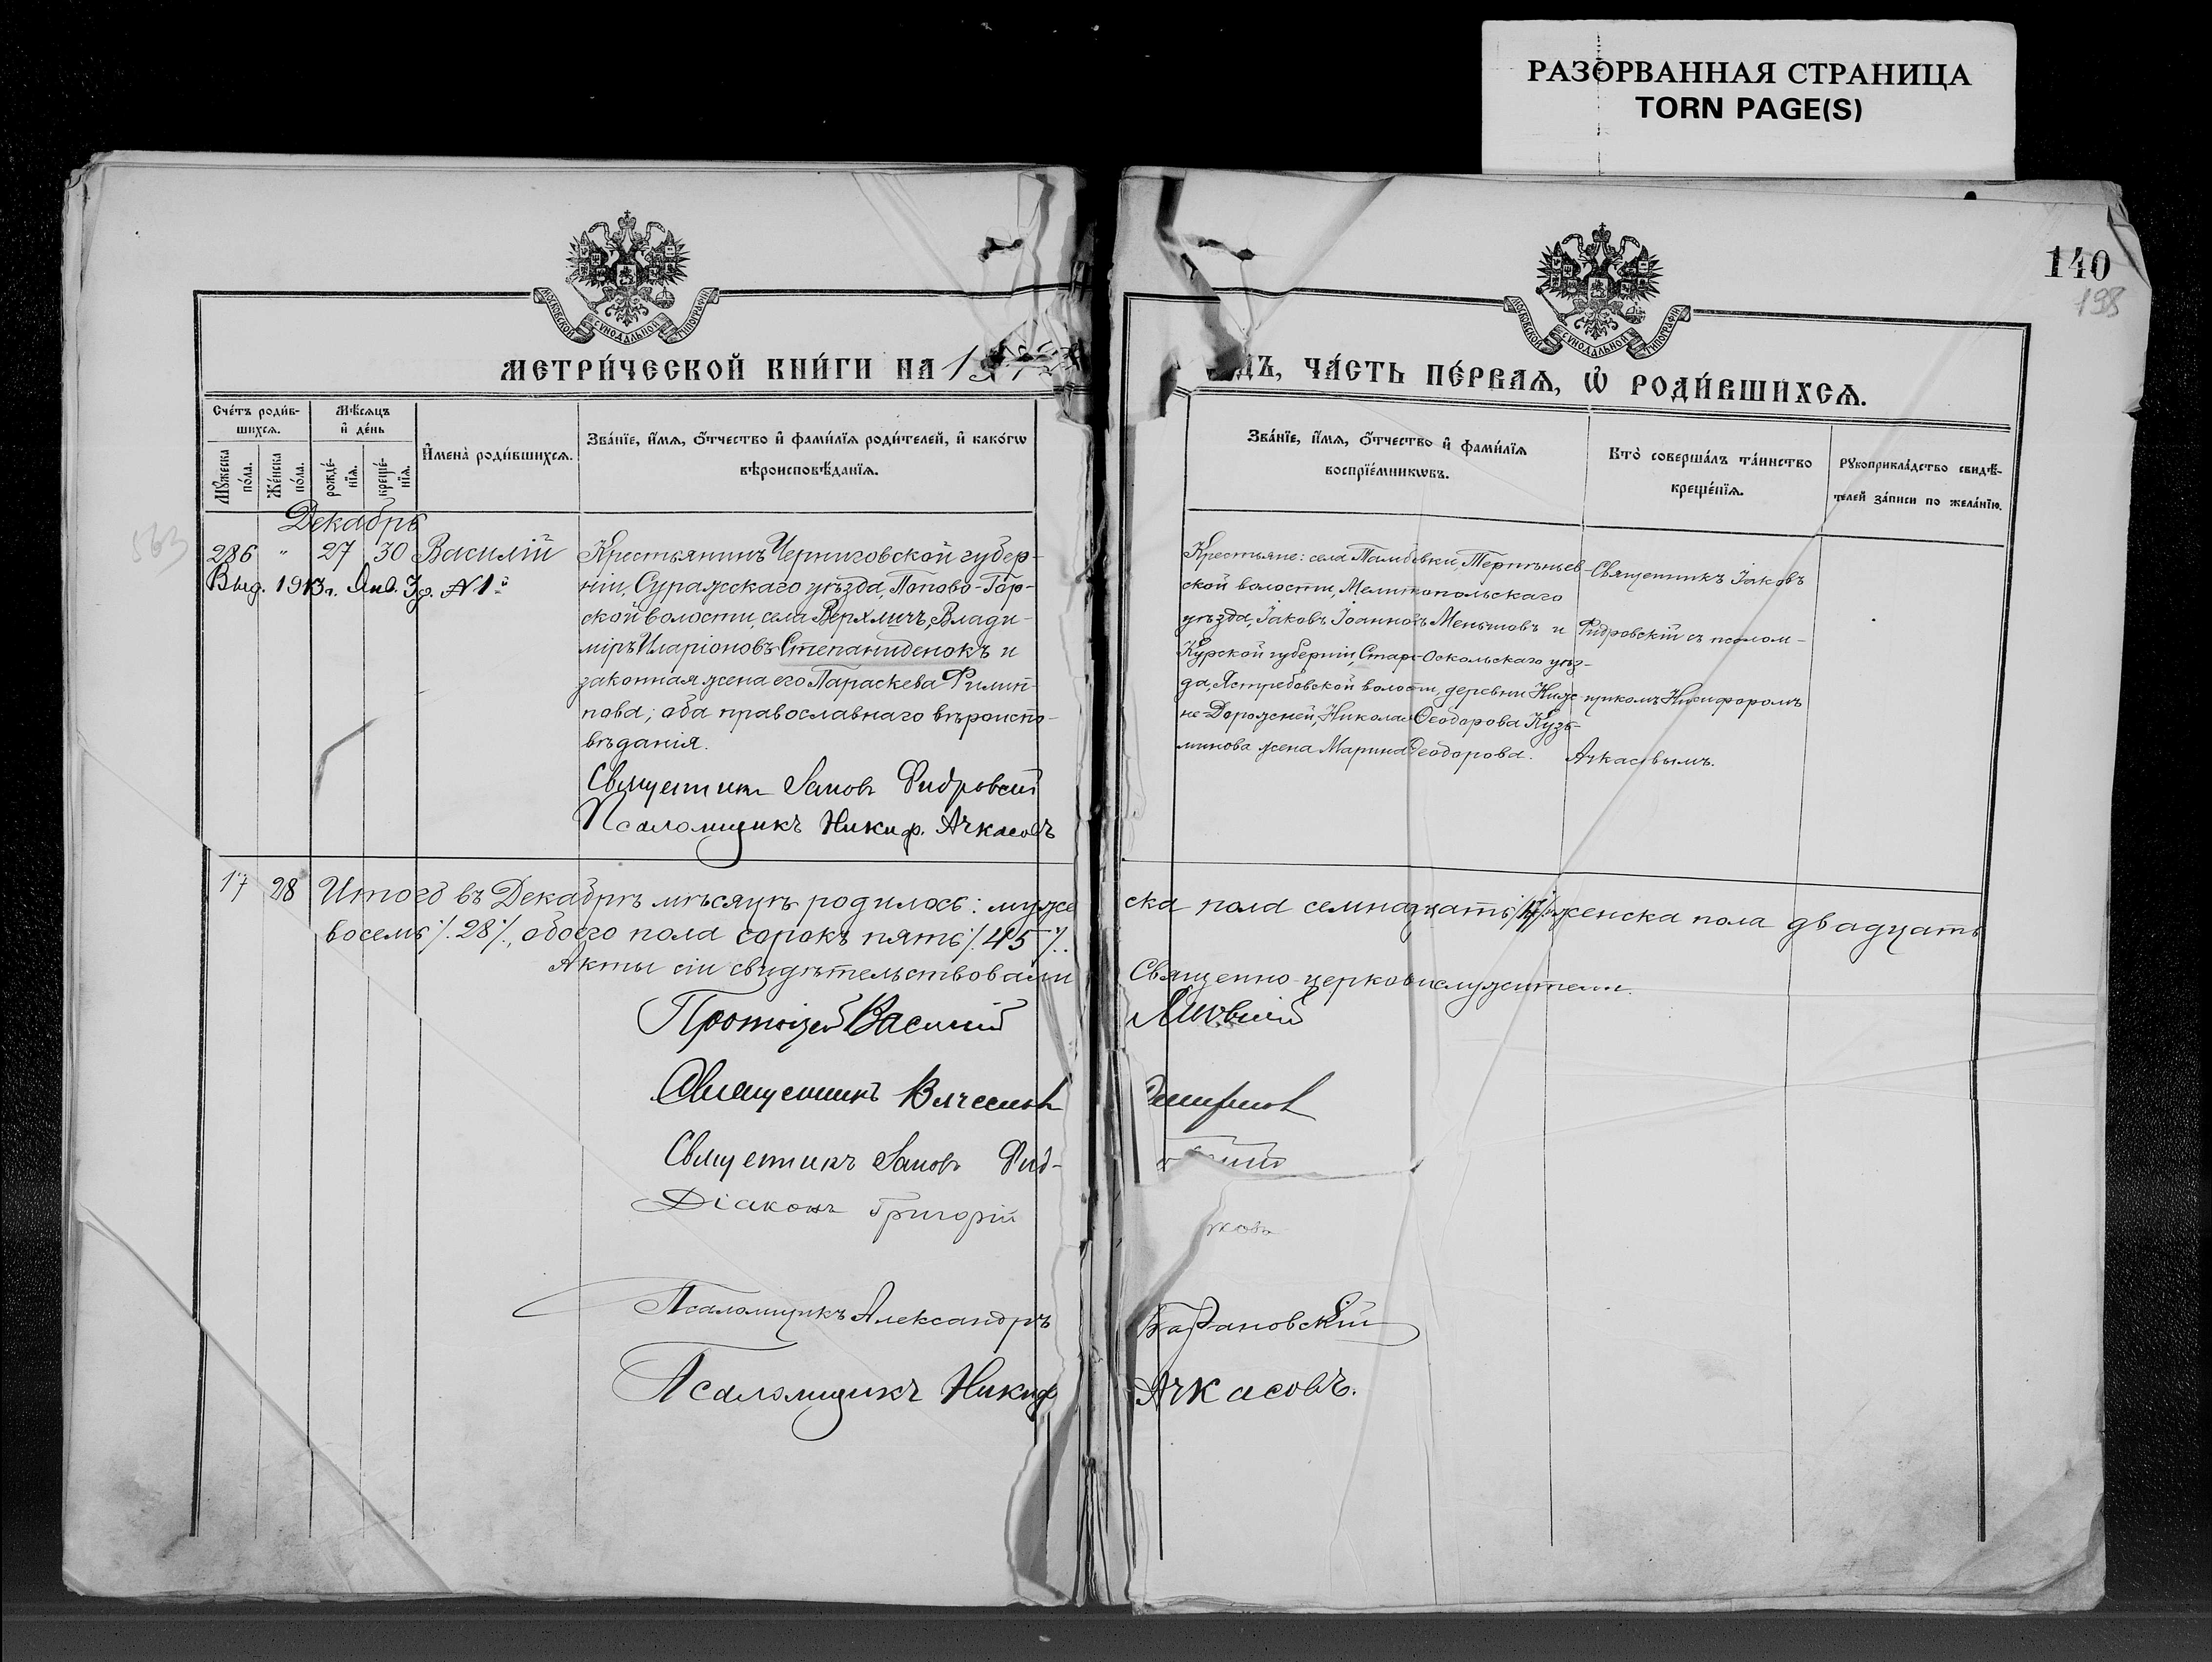 РАЗОРВАННАЯ СТРАНИЦА
TORN PAGE(S)
140
198
МОСКОВСКОЙ СУНОДАЛЬНОЙ ТИПОГРАФІИ
МОСКОВСКОЙ СУНОДАЛЬНОЙ ТИПОГРАФІИ
МЕТРИ́ЧЕСКОЙ КНИ́ГИ НА
ДЪ, ЧА́СТЬ ПЕ́РВАѦ, Ѡ҆ РОДИ́ВШИХСѦ.
Сче́тъ роди́в-
шихсѧ.
Мѣ́сѧцъ
и҆ де́нь
Мꙋ́жеска
по́ла.
Же́нска
по́ла.
рожде́-
нїѧ.
креще́-
нїѧ.
И҆мена̀ роди́вшихсѧ.
Зва́нїе, и҆́мѧ, ѻ҆́тчество и҆ фами́лїѧ роди́телей, и҆ како́гѡ
вѣроисповѣ́данїѧ.
Зва́нїе, и҆́мѧ, ѻ҆́тчество и҆ фами́лїѧ
воспрїе́мникѡвъ.
Кто̀ соверша́лъ та́инство
креще́нїѧ.
Рꙋкоприкла́дство свидѣ́-
телей за́писи по жела́нїю.
563
Декабрь
286 " 27 30 Василій
Выд. 1913 г. Янв. 3 д. №1º
Крестьянинъ Черниговской губер-
ніи, Суражскаго уѣзда, Попово-Гор-
ской волости, села Верхличъ, Влади-
міръ Иларіоновъ Степаниденокъ и
законная жена его Параскева Филип-
пова; оба православнаго вѣроиспо-
вѣданія.
Священникъ Іаковъ Фидровскій
Псаломщикъ Никиф. Ачкасовъ
Крестьяне: села Тамбовки, Терпѣньев-
ской волости, Мелитопольскаго
уѣзда, Іаковъ Іоанновъ Меньшовъ и
Курской губерніи, Старо-Оскольскаго уѣз-
да, Ястребовской волости, деревни Ниж-
не Дорожней, Николая Ѳеодорова Кузь-
минова жена Марина Ѳеодорова.
Священникъ Іаковъ
Фидровскій съ псалом-
щикомъ Никифоромъ
Ачкасовымъ.
17 28 Итого въ Декабрѣ мѣсяцѣ родилось: муже ска пола семнадцать /17/ женска пола двадцать
восемь /.28/., обоего пола сорокъ пять /.45/.
Акты сіи свидѣтельствовали Священно-церковнослужители.
Протоіерей Василій
Священникъ Вячеслав
Священникъ Іаковъ Фид-
Діаконъ Григорій
Псаломщикъ Александръ Барановскій
Псаломщикъ Никиф Ачкасовъ.